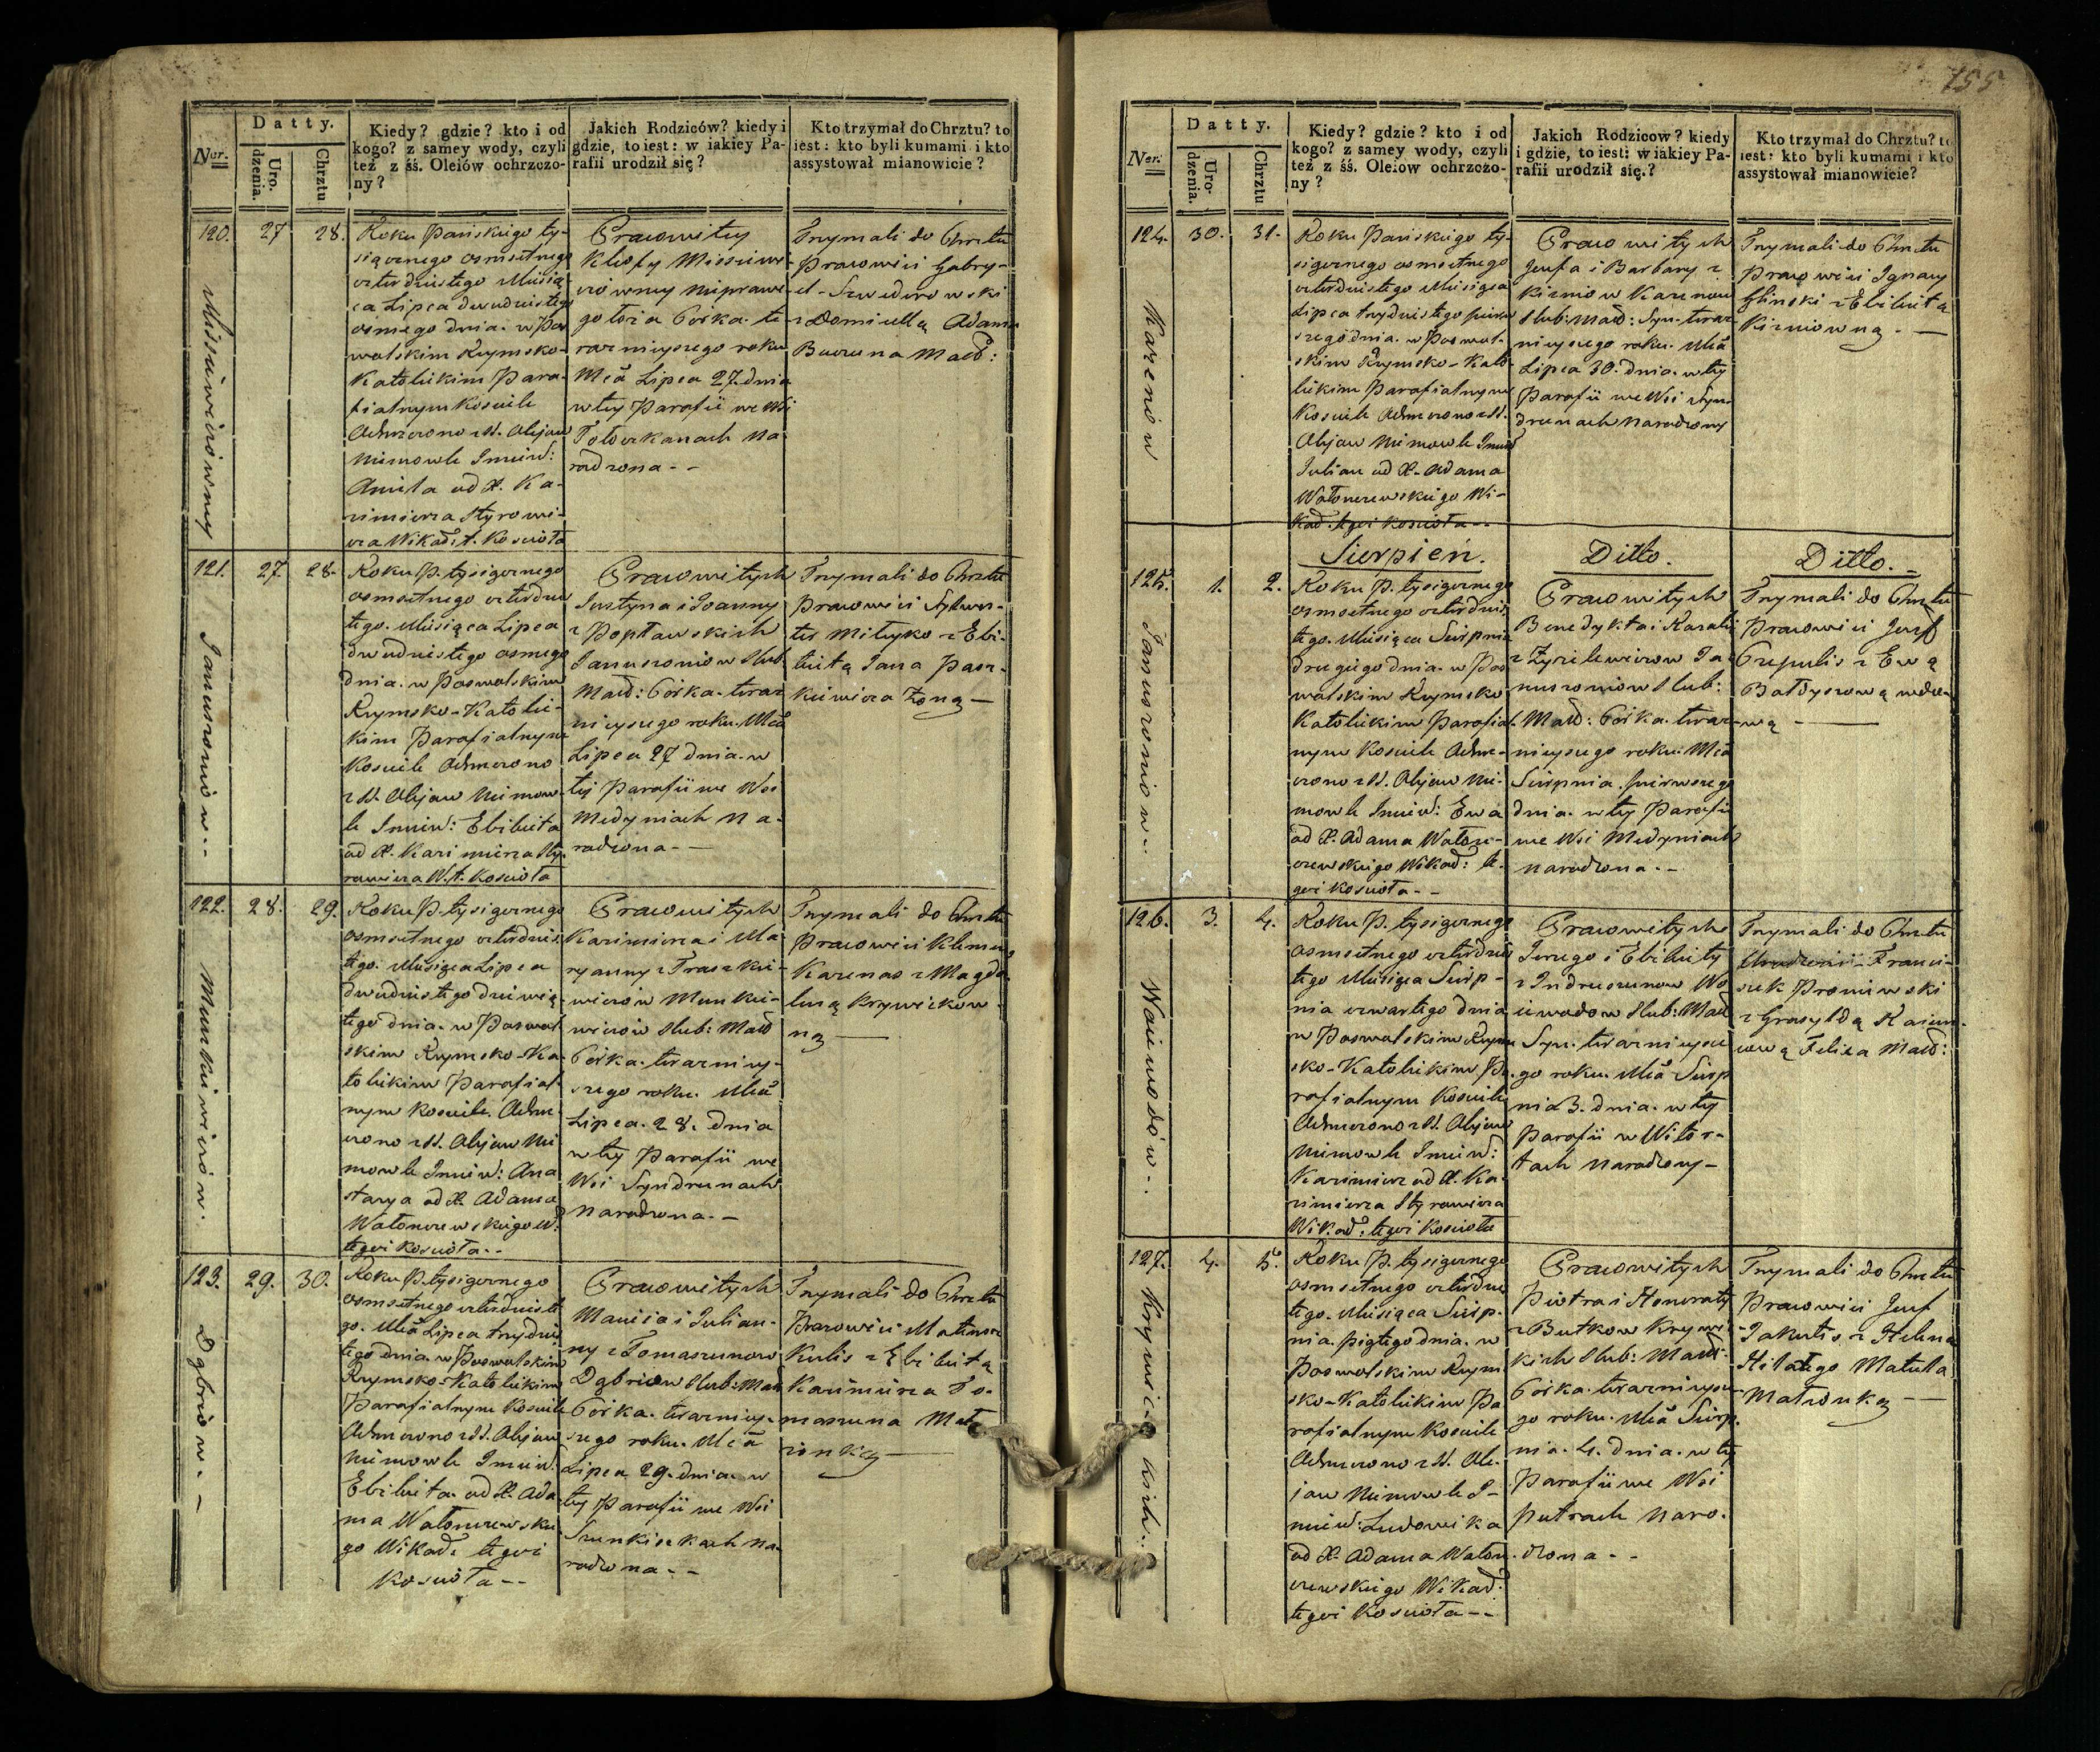 155
Datty.
Nur.
Uro-
dzenia.
Chrztu
Kiedy? gdzie? kto i od
kogo? z samey wody, czyli
też z śś. Oleiów ochrzczo-
ny?
Jakich Rodziców? kiedy i
gdzie, to iest: w iakiey Pa-
rafii urodził się?
Kto trzymał do Chrztu? to
iest: kto byli kumami i kto
assystował mianowicie?
120.
27
28.
Roku Pańskiego ty-
siącznego osmsetnego
czterdziestego Miesią-
ca Lipca dwudziestego
osmego dnia. w Pos
walskim Rzymsko-
Katolickim Para-
fialnym Kosciele
Ochrzczono z SS. Olejow
Niemowle Imien:
Aniela od X. Ka-
zimierza Styrowi-
cza Wikar: t. Koscioła
Prawowitey
gotoża Corka. te
raznieyszego roku
Mca Lipca 27. dnia
w tey Parafii we Wsi
Tołoczkanach na
rodzona--
Trzymali do Chrztu
Prawowici Gabry-
el
z Domicellą Adama
Małż:
121.
27.
28.
Januszoniow--
Roku P. tysiącznego
osmsetnego czterdzies
tego. Miesiąca Lipca
dwudziestego osmego
dnia. w Poswolskim
Rzymsko-Katolic-
kim Parafialnym
Kosciele Ochrzczono
z SS. Olejow Niemow-
le Imien: Elżbieta
od X. Kazimierza Sty-
rowicza W. t. Kosciola
Prawowitych
Justyna i Joanny
z Popławskich
Janusoniow Slub:
Małż: Corka. teraz
nieyszego roku. Mca
Lipca 27 dnia. w
tey Parafii we Wsi
Medyniach na-
rodzona--
Trzymali do Chrztu
Prawowici Sylwes-
ter Mituyko z Elż-
bietą Jana Pasz-
kiewicza Żoną—
122.
28.
29.
Munkiewiczow.
Roku P. tysiącznego
osmsetnego czterdzies
tego. Miesiąca Lipca
dwudziestego dziewią-
tego dnia. w Poswol
skim Rzymsko-Ka-
tolickim Parafial-
nym Kosciele. Ochrz-
czono z SS. Olejow Nie
mowle Imien: Ana
stazya od X. Adama
Wołonczewskiego W.
tegoż Kosciola--
Prawowitych
Kazimierza i Ma
ryanny z Traszkie-
wiczow Munkie-
wiczow Slub: Małż
Corka. terazniey-
szego roku. Mca
Lipca. 28. dnia
w tey Parafii we
Wsi Syndrunach
narodzona.—
Trzymali do Chrztu
Prawowici Klemens
Karenas z Magda-
leną Krzywickow
ną—
123.
29.
30.
Dąbriow.—
Roku P. tysiącznego
osmsetnego czterdzieste
go. Mca Lipca trzydzies
tego dnia. w Poswolskim
Rzymsko-Katolickim
Parafialnym Kosciele
Ochrzczono z SS. Olejow
Niemowle Imien:
Elżbieta. od X. Ada-
ma Wołonczewskie
go Wikar: tegoż
Kosciola--
Prawowitych
Macieia i Julian-
ny z Tomaszunow
Dąbriow Slub: Małż
Corka. terazniey-
szego roku. Mca
Lipca 29. dnia. w
tey Parafii we Wsi
Szunkiszkach na-
rodzona--
Trzymali do Chrztu
Prawowici Mateusz
Kulis z Elżbietą
Kazimierza To-
maszuna Mał-
żonką—
Datty.
Ner.
Uro-
dzenia.
Chrztu
Kiedy? gdzie? kto i od
kogo? z samey wody, czyli
też z śś. Oleiow ochrzczo-
ny?
Jakich Rodzicow? kiedy
i gdzie, to iest: w iakiey Pa-
rafii urodził się.?
Kto trzymał do Chrztu? to
iest: kto byli kumami i kto
assystował mianowicie?
124.
30.
31.
Karenow
Roku Pańskiego ty-
siącznego osmsetnego
czterdziestego Miesiąca
Lipca trzydziestego pierw
szego dnia. w Poswol-
skim Rzymsko-Kato-
lickim Parafialnym
Kosciele Ochrzczono z SS.
Olejow Niemowle Imien
Julian od X. Adama
Wołonczewskiego Wi-
kar. tegoż Kosciola--
Prawowitych
Jozefa i Barbary z
Kizniow Karenow
Slub: Małż: Syn. teraz
nieyszego roku. Mca
Lipca 30. dnia. w tey
Parafii we Wsi Syn-
drunach narodzony
Trzymali do Chrztu
Prawowici Ignacy
Glinski z Elżbietą
Kizniowną.—
Sierpień.
Ditto.
Ditto.-
125.
1.
2.
Janusoniow--
Roku P. tysiącznego
osmsetnego czterdzies
tego. Miesiąca Sierpnia
drugiego dnia. w Pos
wolskim Rzymsko
Katolickim Parafial-
nym Kosciele Ochrz-
czono z SS. Olejow Nie-
mowle Imien: Ewa
od X. Adama Wołon-
czewskiego Wikar: te-
goż Kosciola--
Prawowitych
Benedykta i Rozalii
z Zyzilewiczow Ja-
nusoniow Slub:
Małż: Corka. teraz-
nieyszego roku. Mca
Sierpnia. pierwszego
dnia. w tey Parafii
we Wsi Medyniach
narodzona.--
Trzymali do Chrztu
Prawowici Jozef
Czepulis z Ewą
Bałdyszową wdo-
wą—
126.
3.
4.
Woiewodow--
Roku P. tysiącznego
osmsetnego czterdzies
tego Miesiąca Sierp-
nia czwartego dnia
w Poswolskim Rzym
sko-Katolickim Pa-
rafialnym Kosciele
Ochrzczono z SS. Olejow
Niemowle Imien:
Kazimierz od X. Ka-
zimierza Styrowicza
Wikar: tegoż Kosciola
Prawowitych
Jerzego i Elżbiety
z Indruszunow Wo
iewodow Slub: Małż
Syn. teraznieysze
go roku. Mca Sierp
nia 3. dnia. w tey
Parafii w Witor-
tach narodzony—
Trzymali do Chrztu
Franci-
szek Proniewski
z Grasyldą
Felixa Małż:
127.
4.
5.
Krzywic-kich--
Roku P. tysiącznego
osmsetnego czterdzies
tego. Miesiąca Sierp-
nia. piątego dnia. w
Poswolskim Rzym
sko-Katolickim Pa
rafialnym Kosciele
Ochrzczono z SS. Ole-
jow Niemowle I-
mien: Ludowika
od X. Adama Wołon-
czewskiego Wikar:
tegoż Kosciola--
Prawowitych
Piotra i Honoraty
z Butkow Krzywic
kich Slub: Małż:
Corka. teraznieysze
go roku. Mca Sierp-
nia. 4. dnia. w tey
Parafii we Wsi
Putrach naro-
dzona--
Trzymali do Chrztu
Prawowici Jozef
Jakutis z Heleną
Hilarego Matula
Małżonką—